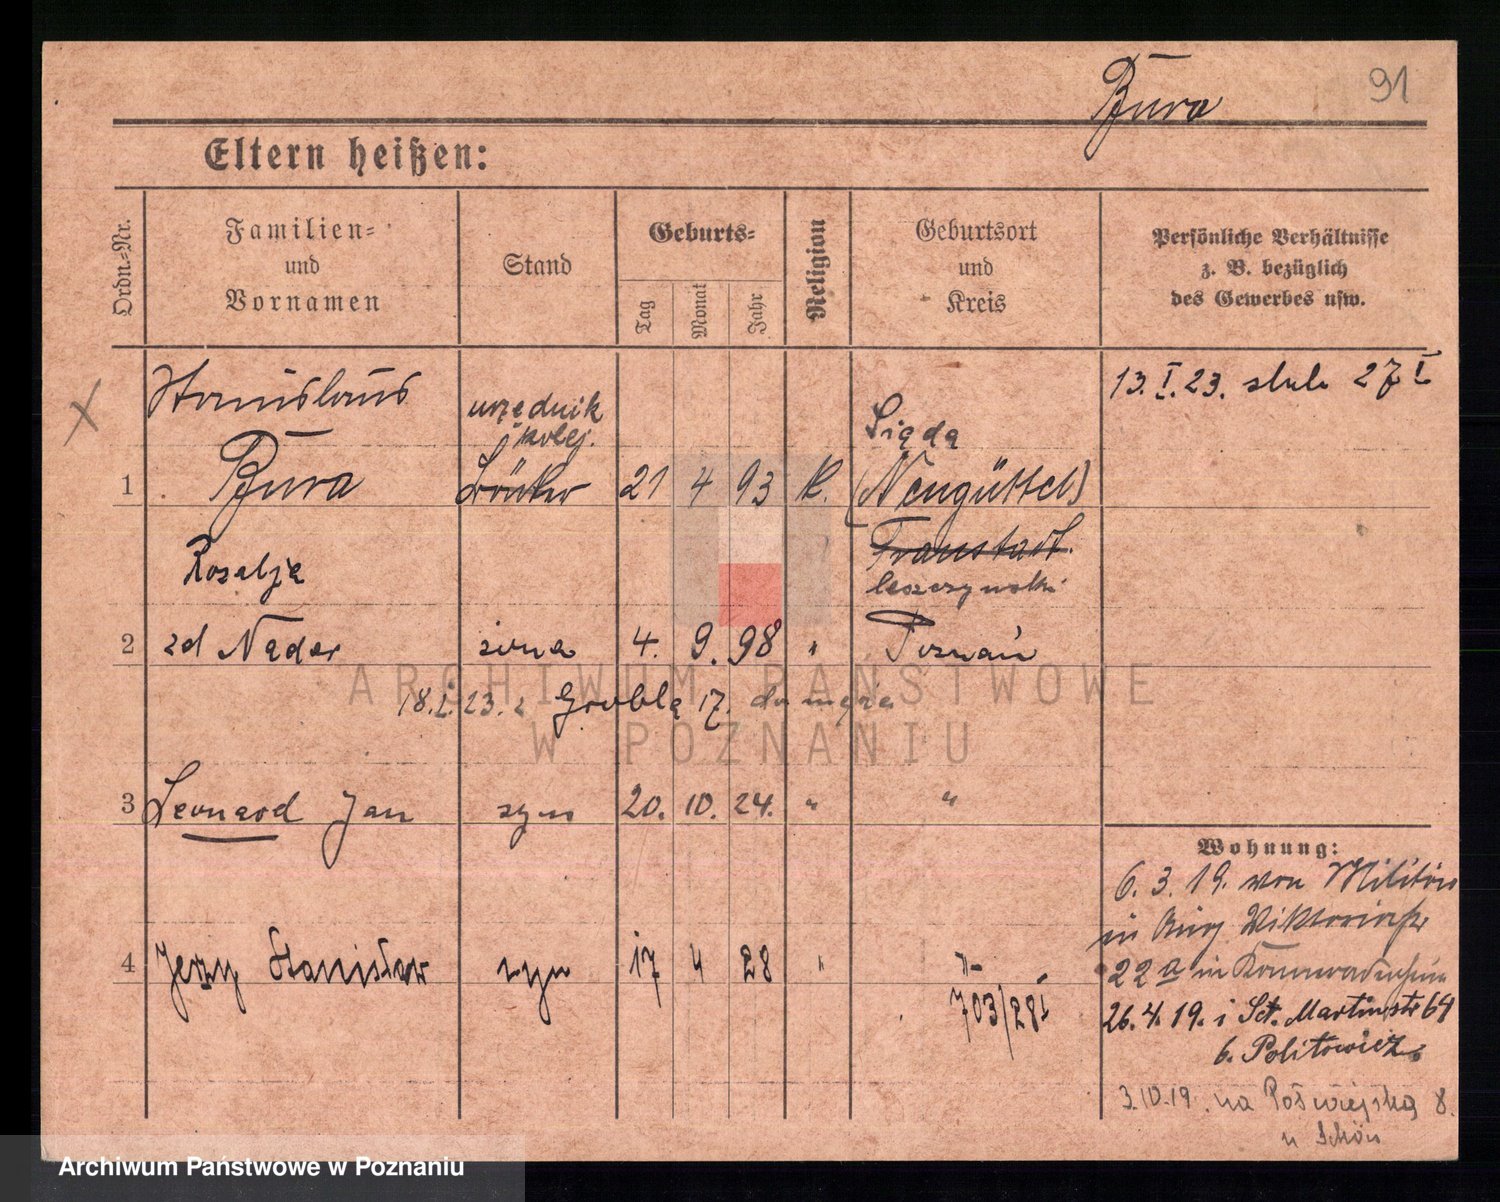 Bura
91
Eltern heißen:
Ordn.-Nr.
Familien-
und
Vornamen
Stand
Geburts-
Tag
Monat
Jahr
Religion
Geburtsort
und
Kreis
Persönliche Verhältnisse
z. B. bezüglich
des Gewerbes usw.
Stanislaus
urzędnik
kolej.
13. I. 23. 27 I
1 Bura 21 4 93 k. (Neugüttel)
Fraustadt.
Rosalja
leszczyński
2 zd Nader żona 4. 9. 98 " Poznań
18. I. 23. z Grobla 17. do męża
ARCHIWUM PAŃSTWOWE
W POZNANIU
3 Leonard Jan syn 20. 10. 24. " "
Wohnung:
6. 3. 19. von Militär
in
4 Jerzy Stanisław syn 17 4 28 " "
22a in
703/28
26. 4. 19. i Sct. Martinstr 64
b. Politowicz
3.10.19. na Półwiejską 8.
u Schön
Archiwum Państwowe w Poznaniu